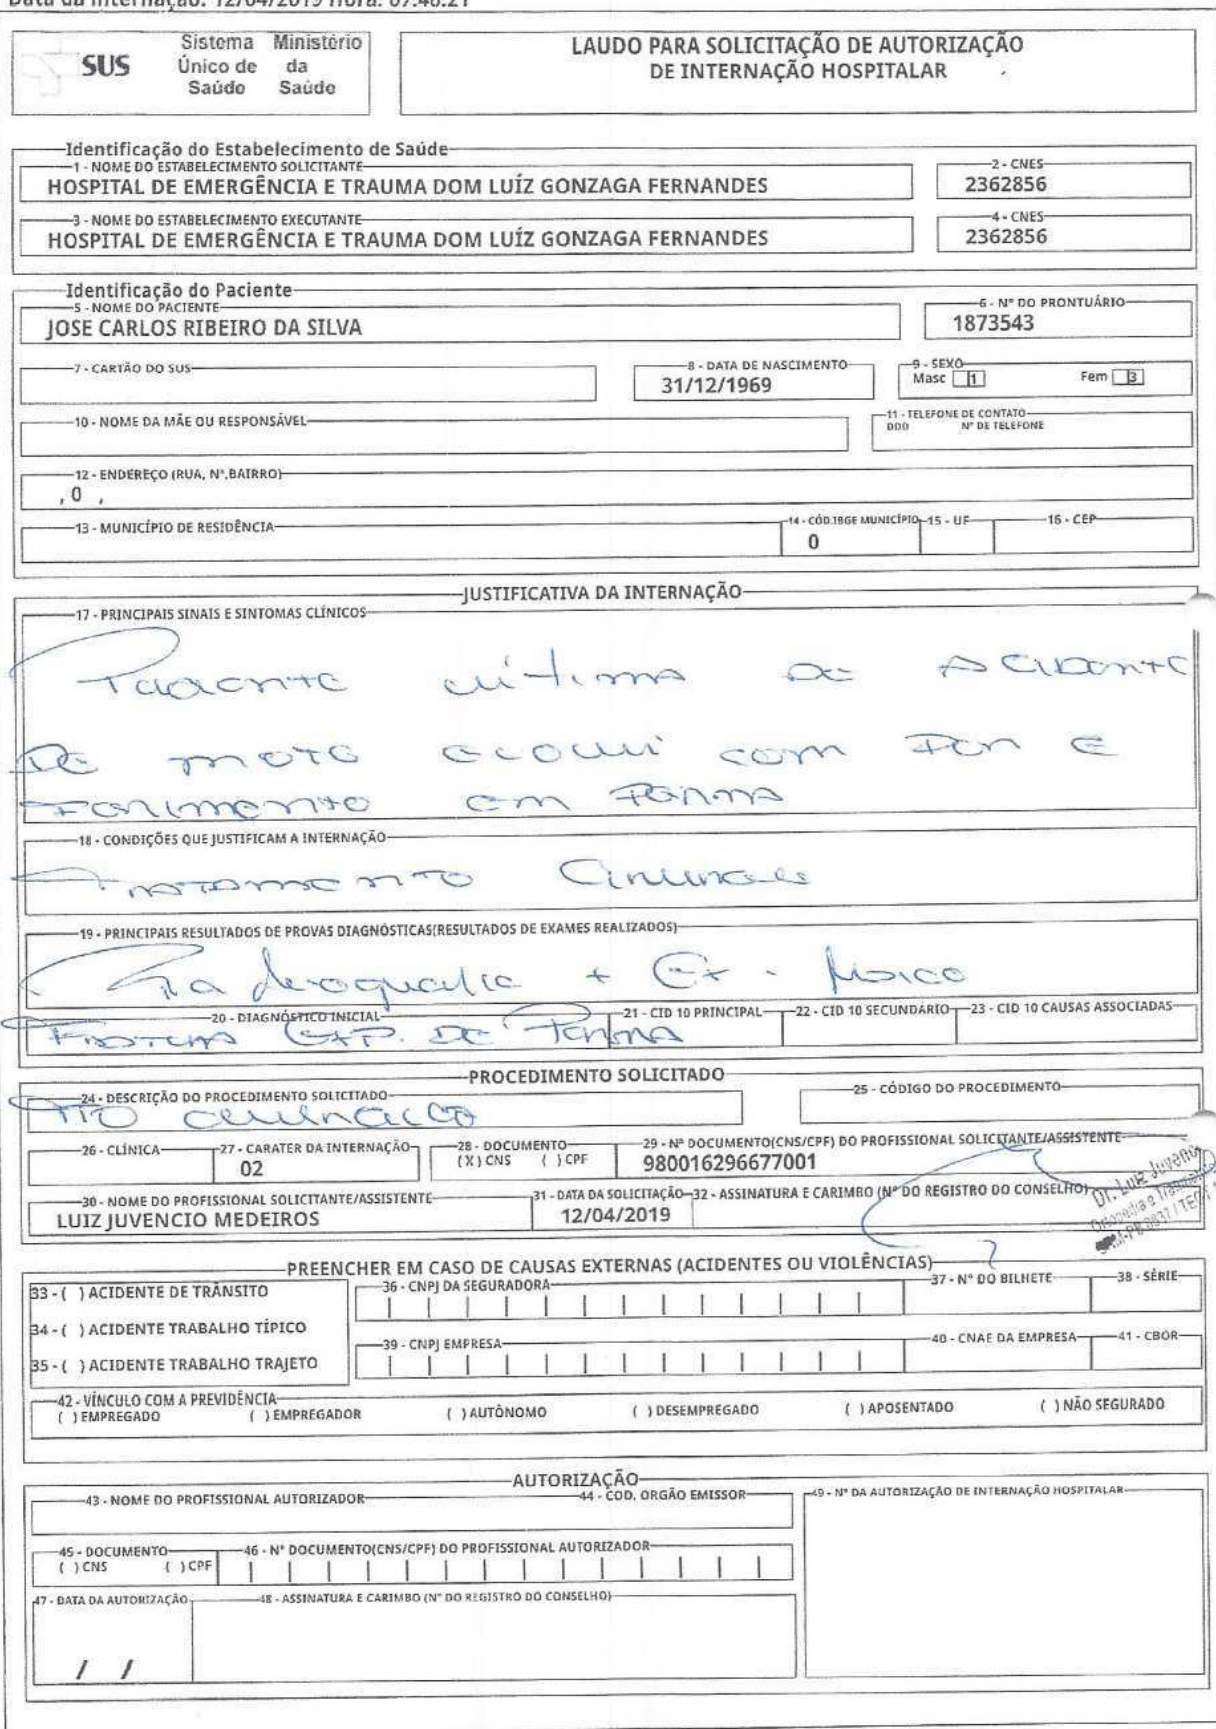 Data da Internação: 12/04/2019 Hora: 07:48:21
SUS Sistema Único de Saúde Ministério da Saúde
LAUDO PARA SOLICITAÇÃO DE AUTORIZAÇÃO
DE INTERNAÇÃO HOSPITALAR
Identificação do Estabelecimento de Saúde
1 - NOME DO ESTABELECIMENTO SOLICITANTE 2 - CNES
HOSPITAL DE EMERGÊNCIA E TRAUMA DOM LUÍZ GONZAGA FERNANDES 2362856
3 - NOME DO ESTABELECIMENTO EXECUTANTE 4 - CNES
HOSPITAL DE EMERGÊNCIA E TRAUMA DOM LUÍZ GONZAGA FERNANDES 2362856
Identificação do Paciente
5 - NOME DO PACIENTE 6 - N° DO PRONTUÁRIO
JOSE CARLOS RIBEIRO DA SILVA 1873543
7 - CARTÃO DO SUS 8 - DATA DE NASCIMENTO 9 - SEXO
31/12/1969 Masc 1 Fem 3
10 - NOME DA MÃE OU RESPONSÁVEL 11 - TELEFONE DE CONTATO
DDD N° DE TELEFONE
12 - ENDEREÇO (RUA, N°,BAIRRO)
, 0 ,
13 - MUNICÍPIO DE RESIDÊNCIA 14 - CÓD.IBGE MUNICÍPIO 15 - UF 16 - CEP
0
JUSTIFICATIVA DA INTERNAÇÃO
17 - PRINCIPAIS SINAIS E SINTOMAS CLÍNICOS
Paciente vítima de acidente
de moto evolui com dor e
ferimento em perna
18 - CONDIÇÕES QUE JUSTIFICAM A INTERNAÇÃO
Tratamento Cirurgico
19 - PRINCIPAIS RESULTADOS DE PROVAS DIAGNÓSTICAS(RESULTADOS DE EXAMES REALIZADOS)
Radiografia + Ex. Físico
20 - DIAGNÓSTICO INICIAL 21 - CID 10 PRINCIPAL 22 - CID 10 SECUNDÁRIO 23 - CID 10 CAUSAS ASSOCIADAS
Fratura Exp. de Perna
PROCEDIMENTO SOLICITADO
24 - DESCRIÇÃO DO PROCEDIMENTO SOLICITADO 25 - CÓDIGO DO PROCEDIMENTO
TTO cirurgico
26 - CLÍNICA 27 - CARATER DA INTERNAÇÃO 28 - DOCUMENTO 29 - N° DOCUMENTO(CNS/CPF) DO PROFISSIONAL SOLICITANTE/ASSISTENTE
02 (X) CNS ( ) CPF 980016296677001
30 - NOME DO PROFISSIONAL SOLICITANTE/ASSISTENTE 31 - DATA DA SOLICITAÇÃO 32 - ASSINATURA E CARIMBO (N° DO REGISTRO DO CONSELHO)
LUIZ JUVENCIO MEDEIROS 12/04/2019
Dr. Luiz Juvencio
Ortopedia e
PREENCHER EM CASO DE CAUSAS EXTERNAS (ACIDENTES OU VIOLÊNCIAS)
33 - ( ) ACIDENTE DE TRÂNSITO 36 - CNPJ DA SEGURADORA 37 - N° DO BILHETE 38 - SÉRIE
34 - ( ) ACIDENTE TRABALHO TÍPICO
35 - ( ) ACIDENTE TRABALHO TRAJETO 39 - CNPJ EMPRESA 40 - CNAE DA EMPRESA 41 - CBOR
42 - VÍNCULO COM A PREVIDÊNCIA
( ) EMPREGADO ( ) EMPREGADOR ( ) AUTÔNOMO ( ) DESEMPREGADO ( ) APOSENTADO ( ) NÃO SEGURADO
AUTORIZAÇÃO
43 - NOME DO PROFISSIONAL AUTORIZADOR 44 - COD. ORGÃO EMISSOR 49 - N° DA AUTORIZAÇÃO DE INTERNAÇÃO HOSPITALAR
45 - DOCUMENTO 46 - N° DOCUMENTO(CNS/CPF) DO PROFISSIONAL AUTORIZADOR
( ) CNS ( ) CPF
47 - DATA DA AUTORIZAÇÃO 48 - ASSINATURA E CARIMBO (N° DO REGISTRO DO CONSELHO)
/ /